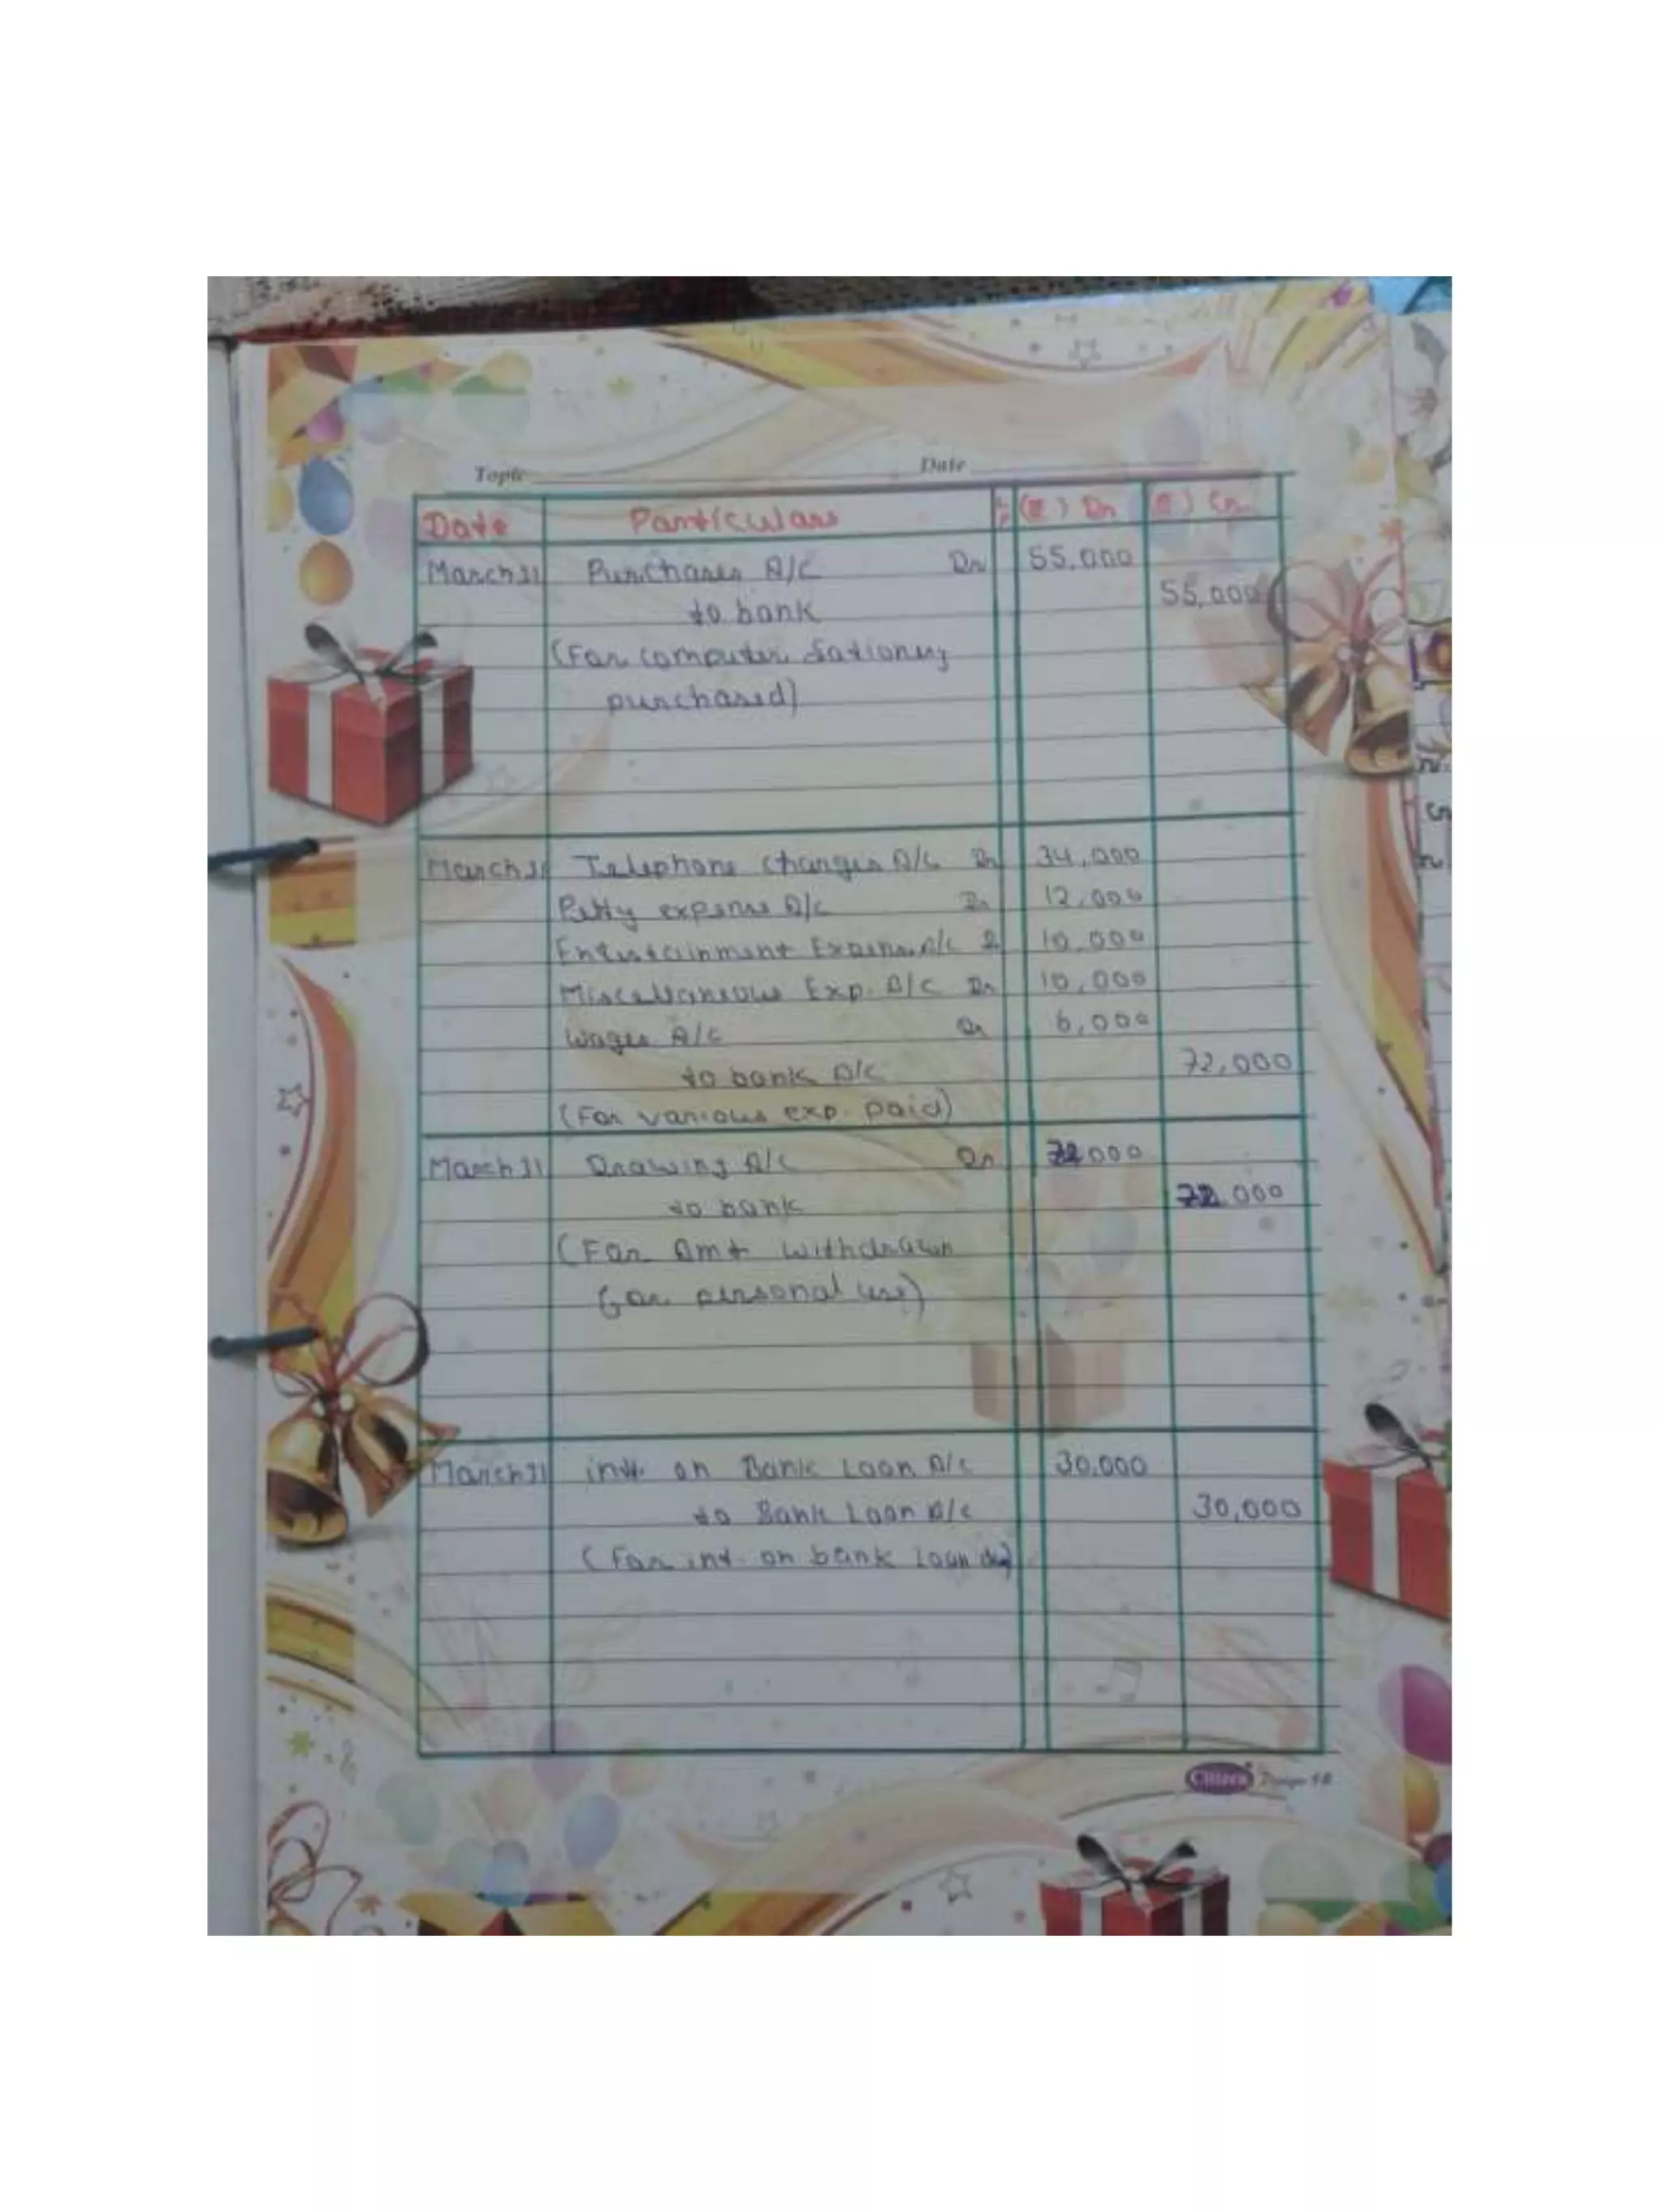 Topic Date
Date Particulars (₹) Dr (₹) Cr
March 31 Purchases A/C Dr 55,000
to bank 55,000
(For computer stationery
purchased)
March 31 Telephone charges A/C Dr 34,000
Petty expense A/c Dr 12,000
Entertainment Expens. A/c 10,000
Miscellaneous Exp. A/C Dr 10,000
Wages A/c Dr 6,000
to bank A/c 72,000
(For various exp. paid)
March 31 Drawing A/c Dr 000
to bank 000
(For Amt withdrawn
for personal use)
March 31 int. on Bank Loan A/c 30,000
to Bank Loan A/c 30,000
(For int. on bank Loan due)
Citizen Design